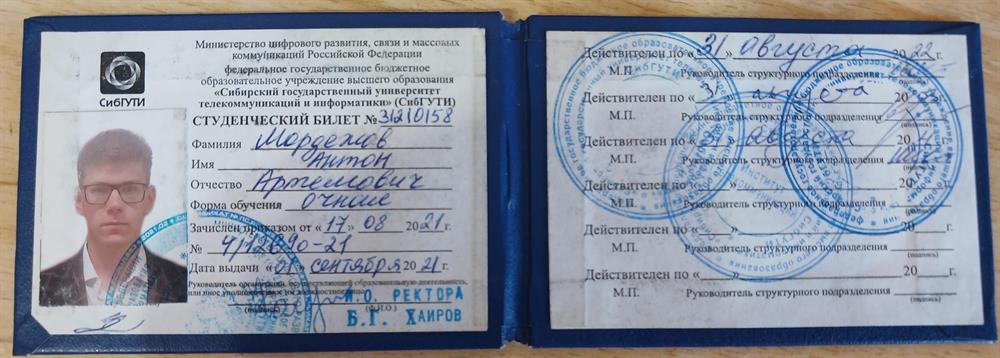 Министерство цифрового развития, связи и массовых
коммуникаций Российской Федерации
федеральное государственное бюджетное
образовательное учреждение высшего образования
«Сибирский государственный университет
телекоммуникаций и информатики» (СибГУТИ)
СибГУТИ
СТУДЕНЧЕСКИЙ БИЛЕТ № 31210158
Фамилия
Имя Антон
Отчество Артемович
Форма обучения очная
Зачислен приказом от «17» 08 2021г.
№ 4/12090-21
Дата выдачи «01» сентября 2021г.
Руководитель организации, осуществляющей образовательную деятельность,
или иное уполномоченное им должностное лицо
(подпись) (Ф.И.О.)
И.О. РЕКТОРА
Б.Г. ХАИРОВ
Действителен по «31» августа 2022г.
М.П. Руководитель структурного подразделения
Действителен по «31 августа 20
М.П. Руководитель структурного подразделения
(подпись)
Действителен по « августа 20
М.П. Руководитель структурного подразделения
(подпись)
Действителен по « » 20 г.
М.П. Руководитель структурного подразделения
Действителен по « » 20 г.
М.П. Руководитель структурного подразделения
(подпись)
Действителен по « » 20 г.
М.П. Руководитель структурного подразделения
(подпись)